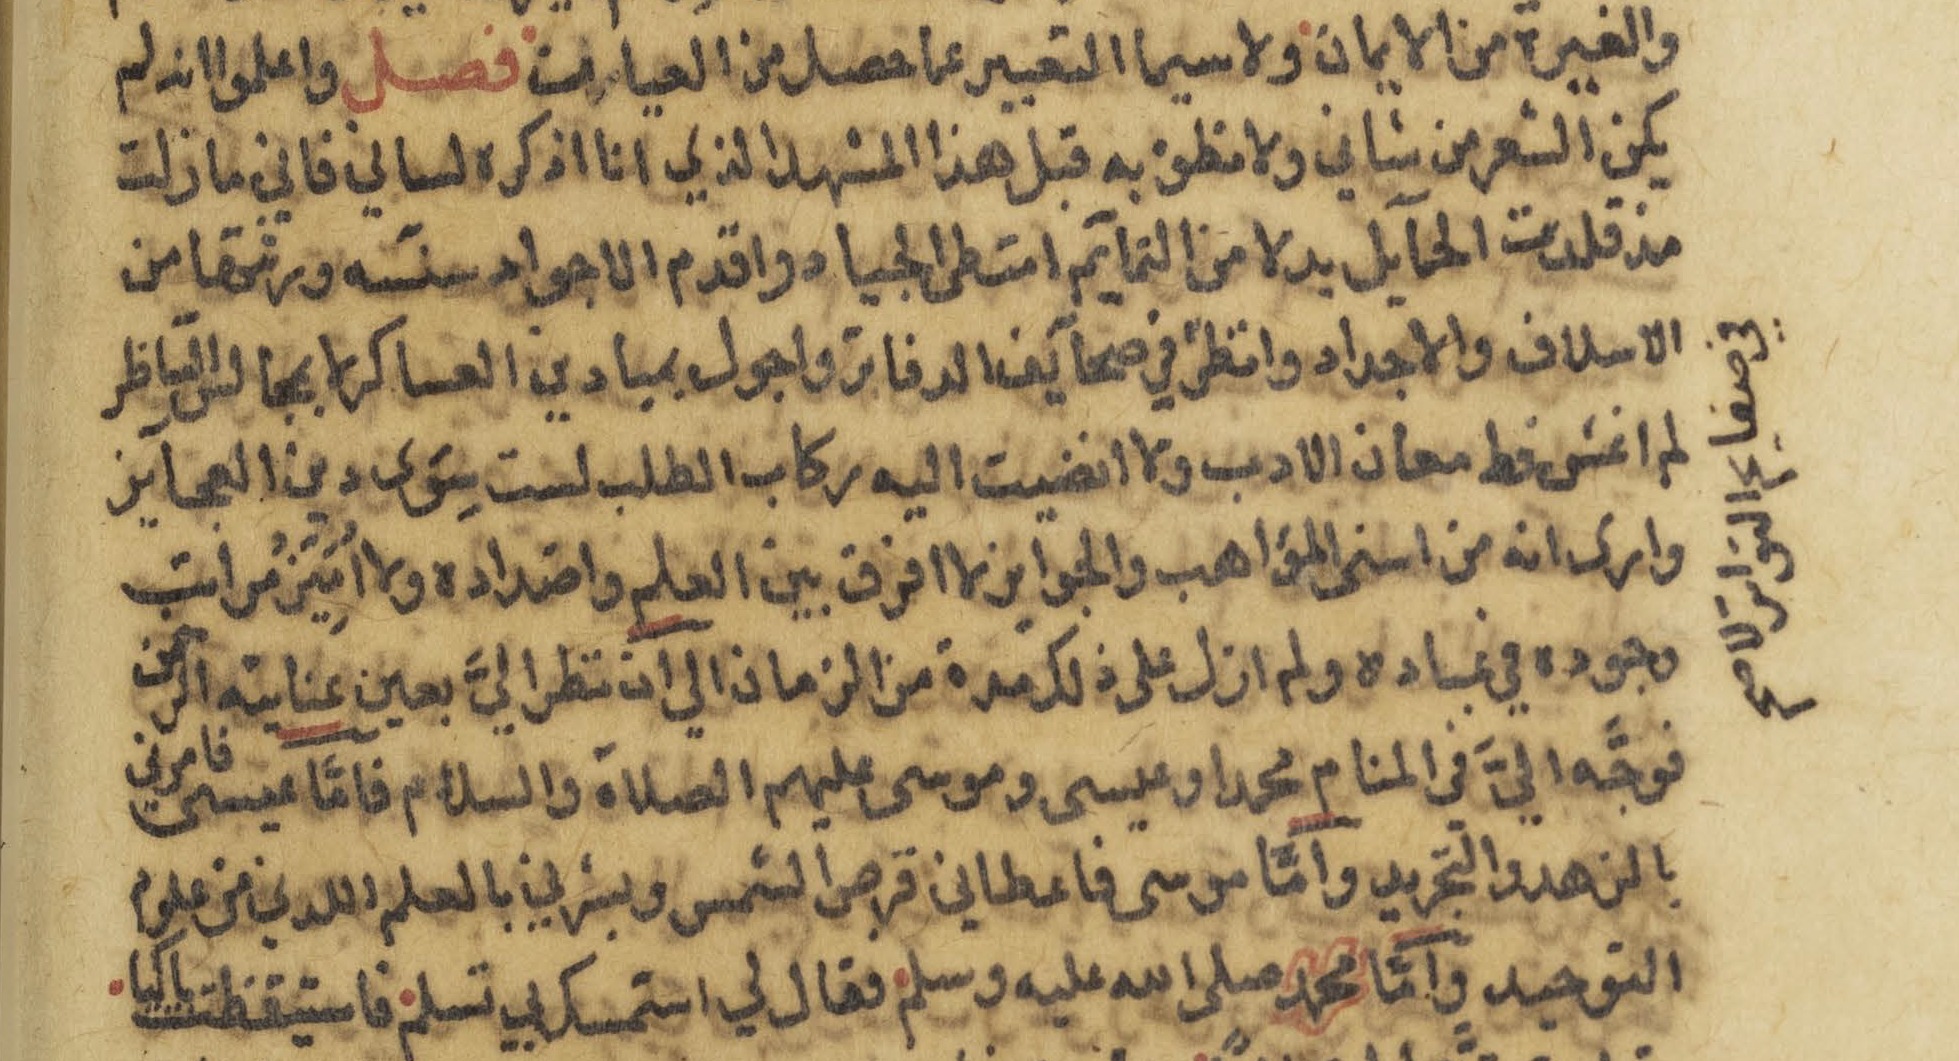 والغيرة من الايمان ولا سيما التعبير عما حصل من العيان فصل واعلموا انه لم
يكن الشعر من شاني ولا منظوم به قبل هذا المشهد الذي انا اذكره لساني فاني ما زلت
مذ قلدت الحمآيل بدلا من التمايم امتطى الجياد واقدم الاجواد سنته ورثتها من
الاسلاف والاجداد وانظر في صحآيف الدفاتر واجول بميادين العساكر لا بمجالس
لم اغش قط معان الادب ولا انضيت اليه ركاب الطلب لست سوى دين العجآيز
وارى انه من اسنى المواهب والجوايز لا افرق بين العلم واضداده ولا اميز مراتب
وجوده في عباده ولم ازل على ذلك مدة من الزمان الي ان نظر اليَّ بعين عنايته الرحمن
فوجَّه اليَّ في المنام محمدا وعيسى وموسى عليهم الصلاة والسلام فامَّا عيسى فامرني
بالزهد والتجريد وامَّا موسى فاعطاني قرص الشمس وبشرني بالعلم اللدني من علوم
التوحيد وامَّا محمد صلى الله عليه وسلم فقال لي استمسك بي تسلم فاستيقظت باكيا
في صفايح التواريخ لا صح